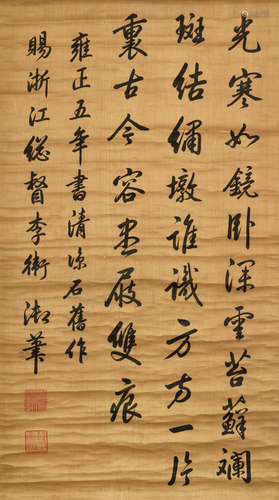 光寒如鏡卧深雲苔蘚斕
斑結繡墩誰識方方一片
裏古今容盡屐雙痕
雍正五年書清凉石舊作
賜浙江總督李衛御筆